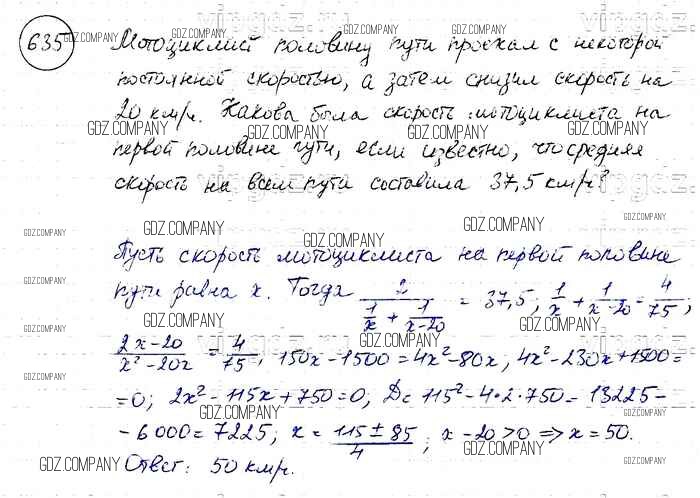 635 Мотоциклист половину пути проехал с некоторой
постоянной скоростью, а затем снизил скорость на
20 км/ч. Какова была скорость мотоциклиста на
первой половине пути, если известно, что средняя
скорость на всем пути составила 37,5 км/ч?
Пусть скорость мотоциклиста на первой половине
пути равна x. Тогда 2/(1/x + 1/(x-20)) = 37,5; 1/x + 1/(x-20) = 4/75;
(2x-20)/(x²-20x) = 4/75; 150x-1500=4x²-80x, 4x²-230x+1500=
=0; 2x²-115x+750=0, D=115²-4·2·750=13225-
-6000=7225, x = (115±85)/4; x-20>0 ⇒ x=50.
Ответ: 50 км/ч.
GDZ.COMPANY
vipgdz.com